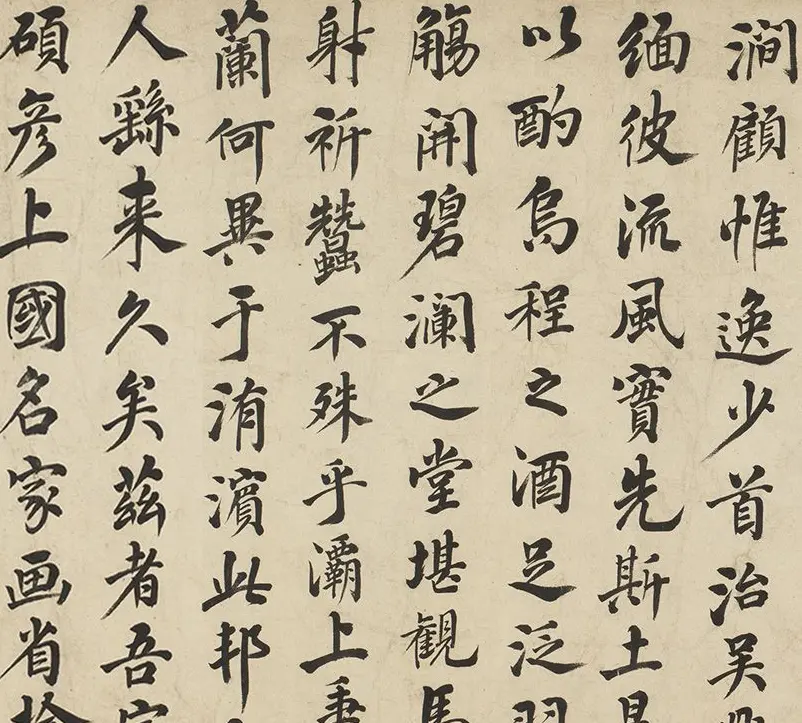 澗顧惟逸少首治吴
緬彼流風實先斯土
以酌烏程之酒足泛羽
觴開碧瀾之堂堪觀馬
射祈蠶不殊乎灞上秉
蘭何異于洧濱此邦
人繇来久矣茲者吾家
碩彦上國名家画省